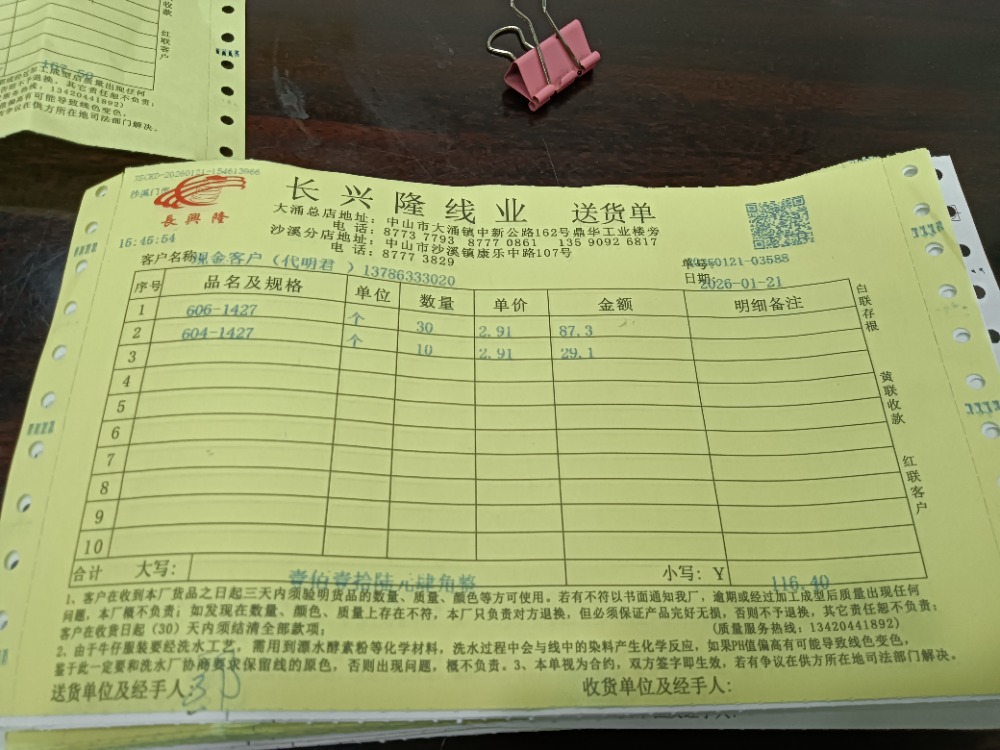 收款
红联客户
线经还加工成型后质量出现任何
不予退换,其它责任恕不负责;
服务热线:13420441892)
值偏高有可能导致线色变色,
有争议在供方所在地司法部门解决。
沙溪门市
長興隆
长兴隆线业 送货单
大涌总店地址:中山市大涌镇中新公路162号鼎华工业楼旁
电话:8773 7793 8777 0861 135 9092 6817
沙溪分店地址:中山市沙溪镇康乐中路107号
电话:8777 3829
15:45:54
客户名称:现金客户(代明君 )13786333020
单号:
20260121-03588
日期:2026-01-21
序号 品名及规格 单位 数量 单价 金额 明细备注
1 606-1427 个 30 2.91 87.3
2 604-1427 个 10 2.91 29.1
3
4
5
6
7
8
9
10
合计 大写: 壹佰壹拾陆元肆角整 小写: Y 116.40
白联存根
黄联收款
红联客户
1、客户在收到本厂货品之日起三天内须验明货品的数量、质量、颜色等方可使用。若有不符以书面通知我厂,逾期或经过加工成型后质量出现任何
问题,本厂概不负责;如发现在数量、颜色、质量上存在不符,本厂只负责对方退换,但必须保证产品完好无损,否则不予退换,其它责任恕不负责;
客户在收货日起(30)天内须结清全部款项; (质量服务热线:13420441892)
2、由于牛仔服装要经洗水工艺,需用到漂水酵素粉等化学材料,洗水过程中会与线中的染料产生化学反应,如果PH值偏高有可能导致线色变色,
鉴于此一定要和洗水厂协商要求保留线的原色,否则出现问题,概不负责。3、本单视为合约,双方签字即生效,若有争议在供方所在地司法部门解决。
送货单位及经手人: 收货单位及经手人: